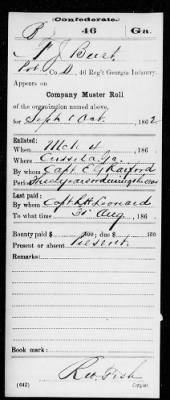 Confederate.
46 Ga.
F J Burt
Pvt Co. D 46 Reg't Georgia Infantry.
Appears on
Company Muster Roll
of the organization named above,
for Sept & Oct, 1862
Enlisted:
When Mch 4, 186
Where Cusseta Ga.
By whom Capt. E. G. Raiford
Period Three years or during the war
Last paid:
By whom Capt R H Leonard
To what time 31 Aug, 186
Bounty paid $ 100; due $ 100
Present or absent Present.
Remarks:
Book mark:
(642) Copyist.